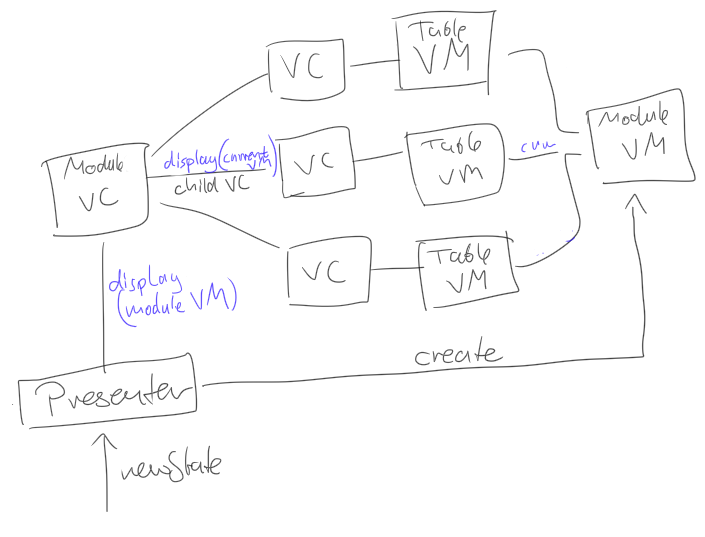 Table
VM
VC
Module
VM
display(current
VM)
child VC
VC
Table
VM
Module
VC
VC
Table
VM
display
(module VM)
create
Presenter
newState